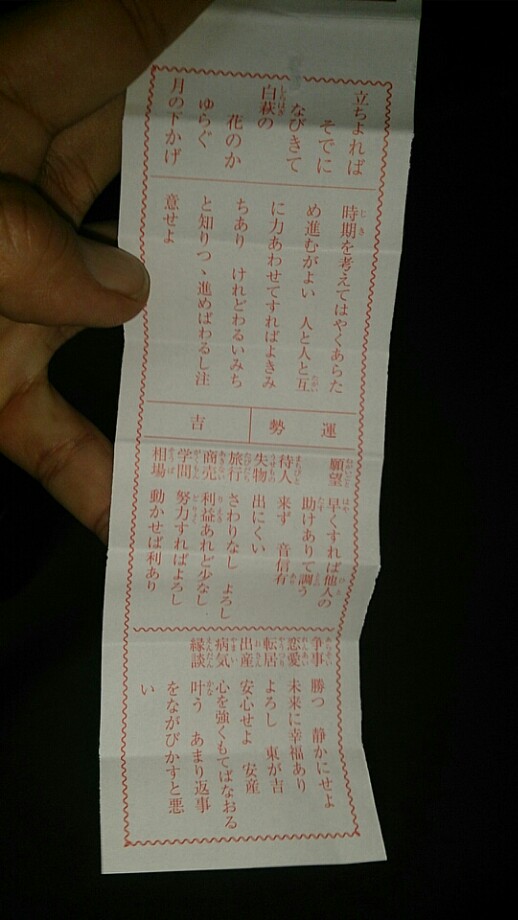 立ちよれば
そでに
なびきて
白萩の
花のか
ゆらぐ
月の下かげ
時期を考えてはやくあらた
め進むがよい 人と人と互
に力あわせてすればよきみ
ちあり けれどわるいみち
と知りつゝ進めばわるし注
意せよ
運勢
吉
願望 早くすれば他人の
助けありて調う
待人 来ず 音信有
失物 出にくい
旅行 さわりなし よろし
商売 利益あれど少なし
学問 努力すればよろし
相場 動かせば利あり
争事 勝つ 静かにせよ
恋愛 未来に幸福あり
転居 よろし 東が吉
出産 安心せよ 安産
病気 心を強くもてばなおる
縁談 叶う あまり返事
をながびかすと悪
い